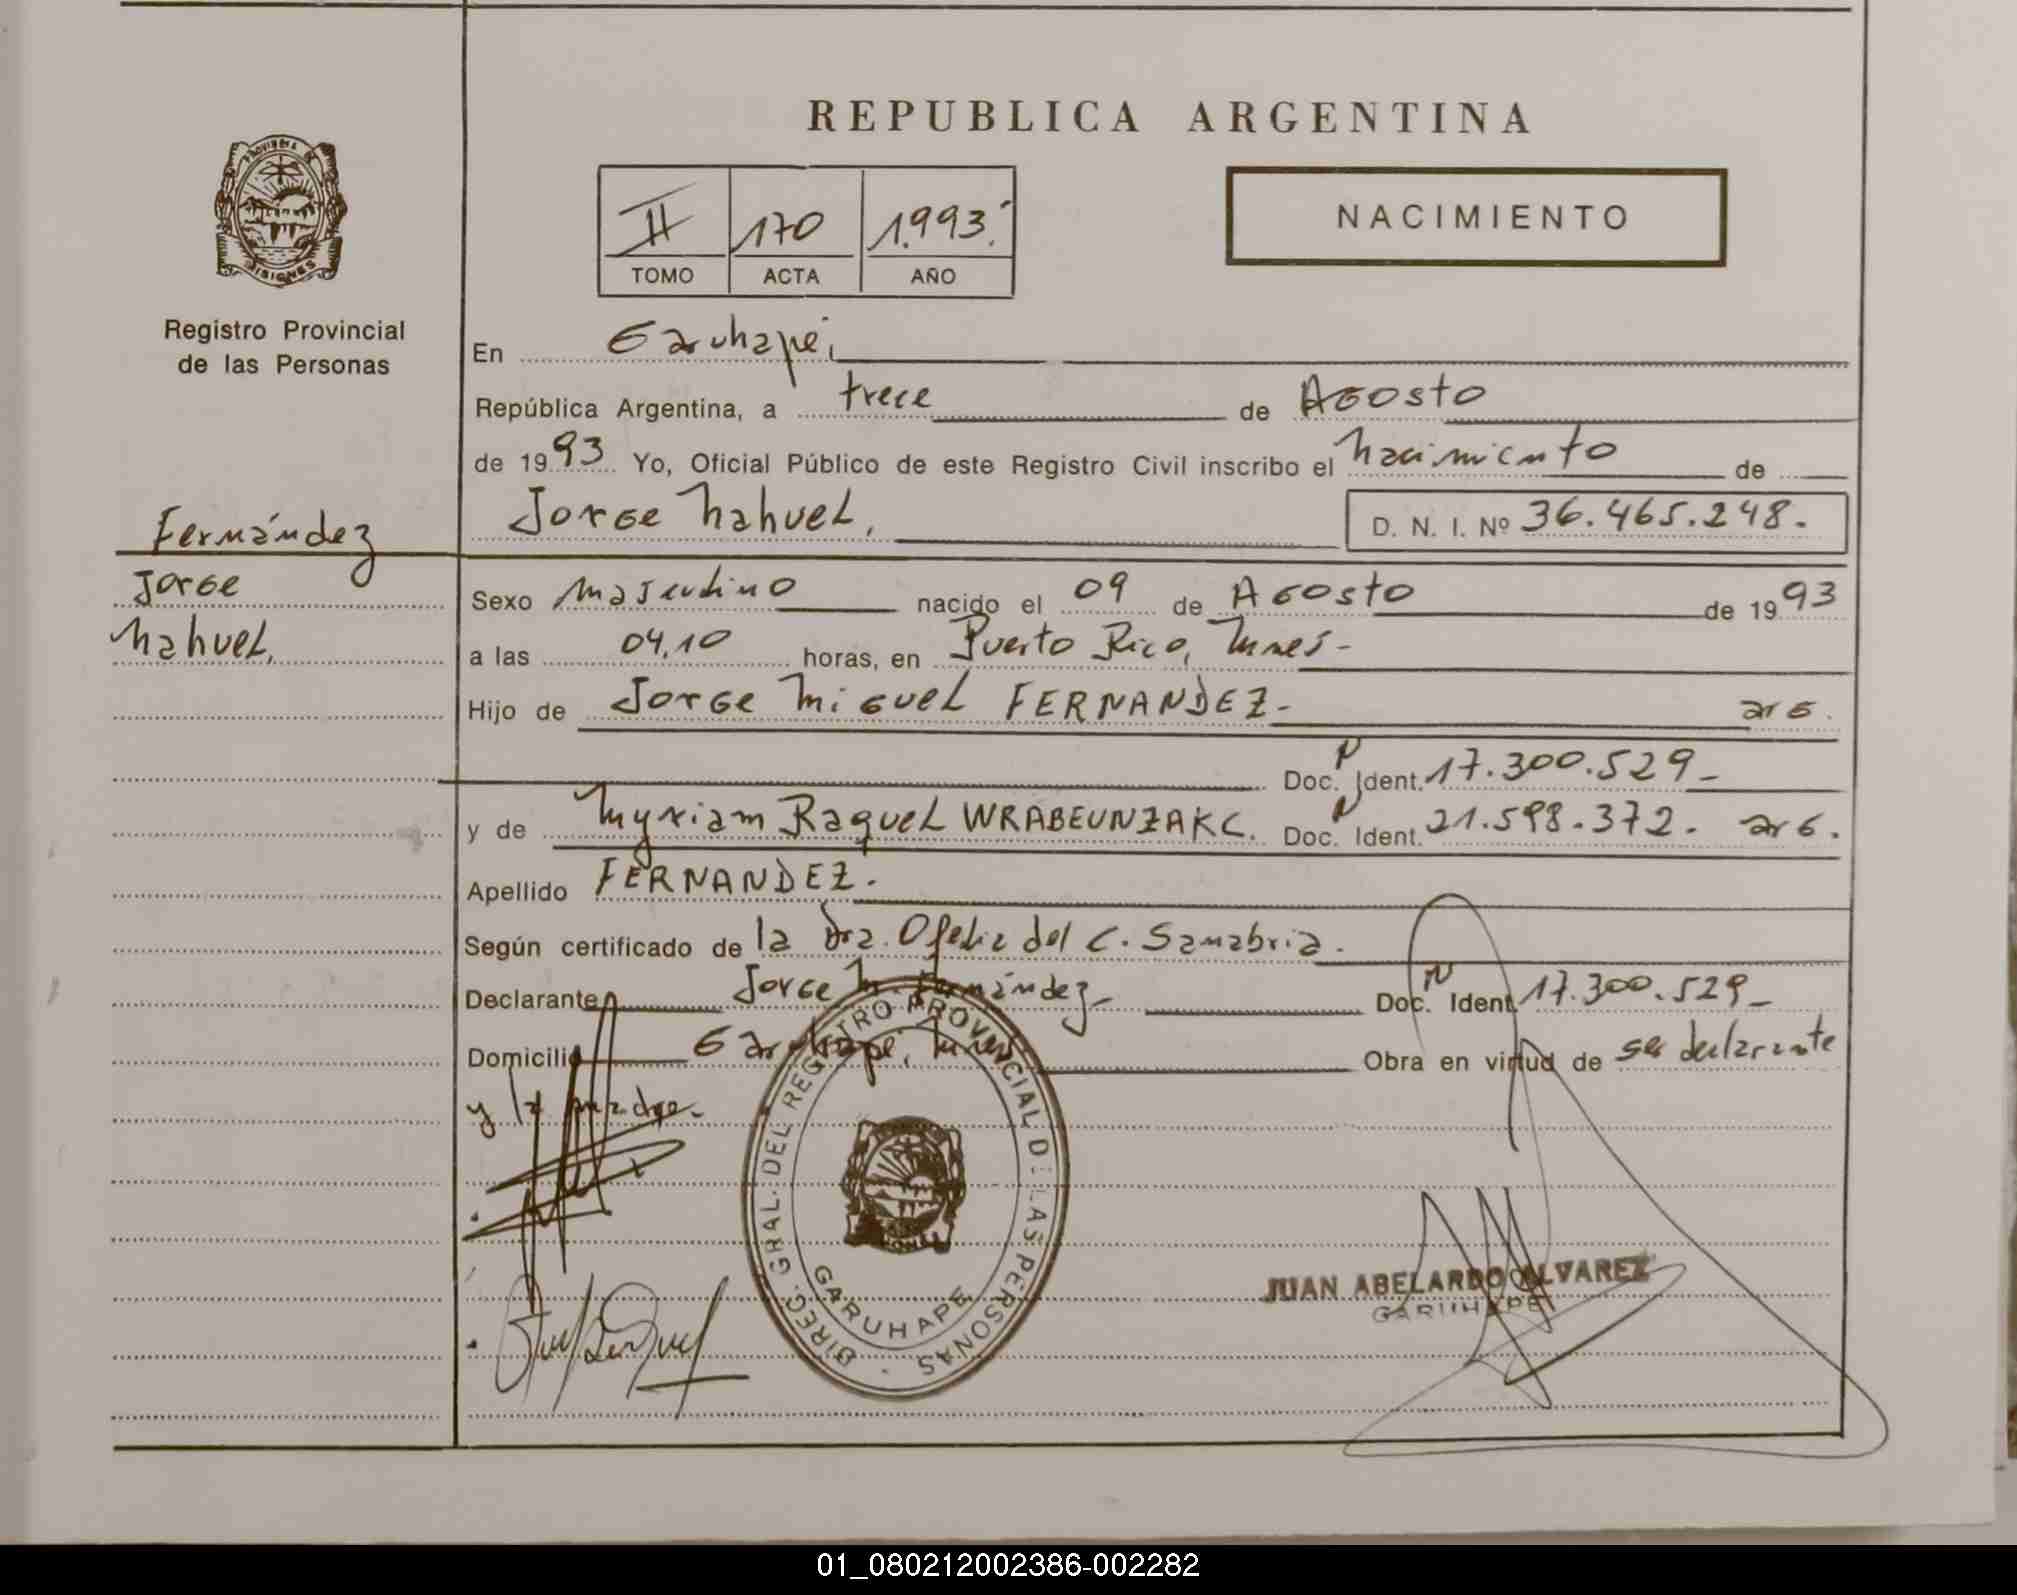 REPUBLICA ARGENTINA
PROVINCIA DE MISIONES
Registro Provincial
de las Personas
II 170 1.993.
TOMO ACTA AÑO
NACIMIENTO
En Garuhapé,
República Argentina, a trece de Agosto
de 1993 Yo, Oficial Público de este Registro Civil inscribo el nacimiento de
Jorge Nahuel, D. N. I. Nº 36.465.248.
Fernández
Jorge
Nahuel,
Sexo masculino nacido el 09 de Agosto de 1993
a las 04,10 horas, en Puerto Rico, Mnes-
Hijo de Jorge Miguel FERNANDEZ- arg.
Doc. N Ident. 17.300.529-
y de Myriam Raquel Doc. N Ident. 21.598.372. arg.
Apellido FERNANDEZ.
Según certificado de la Dra. Ofelia del C. Sanabria.
Declarante Jorge M. Fernández- Doc. N Ident. 17.300.529-
Domicilio Garuhapé, Mnes. Obra en virtud de ser declarante
y la madre.
DIREC. GRAL. DEL REGISTRO PROVINCIAL DE LAS PERSONAS
GARUHAPE
JUAN ABELARDO ALVAREZ
GARUHAPE
01_080212002386-002282